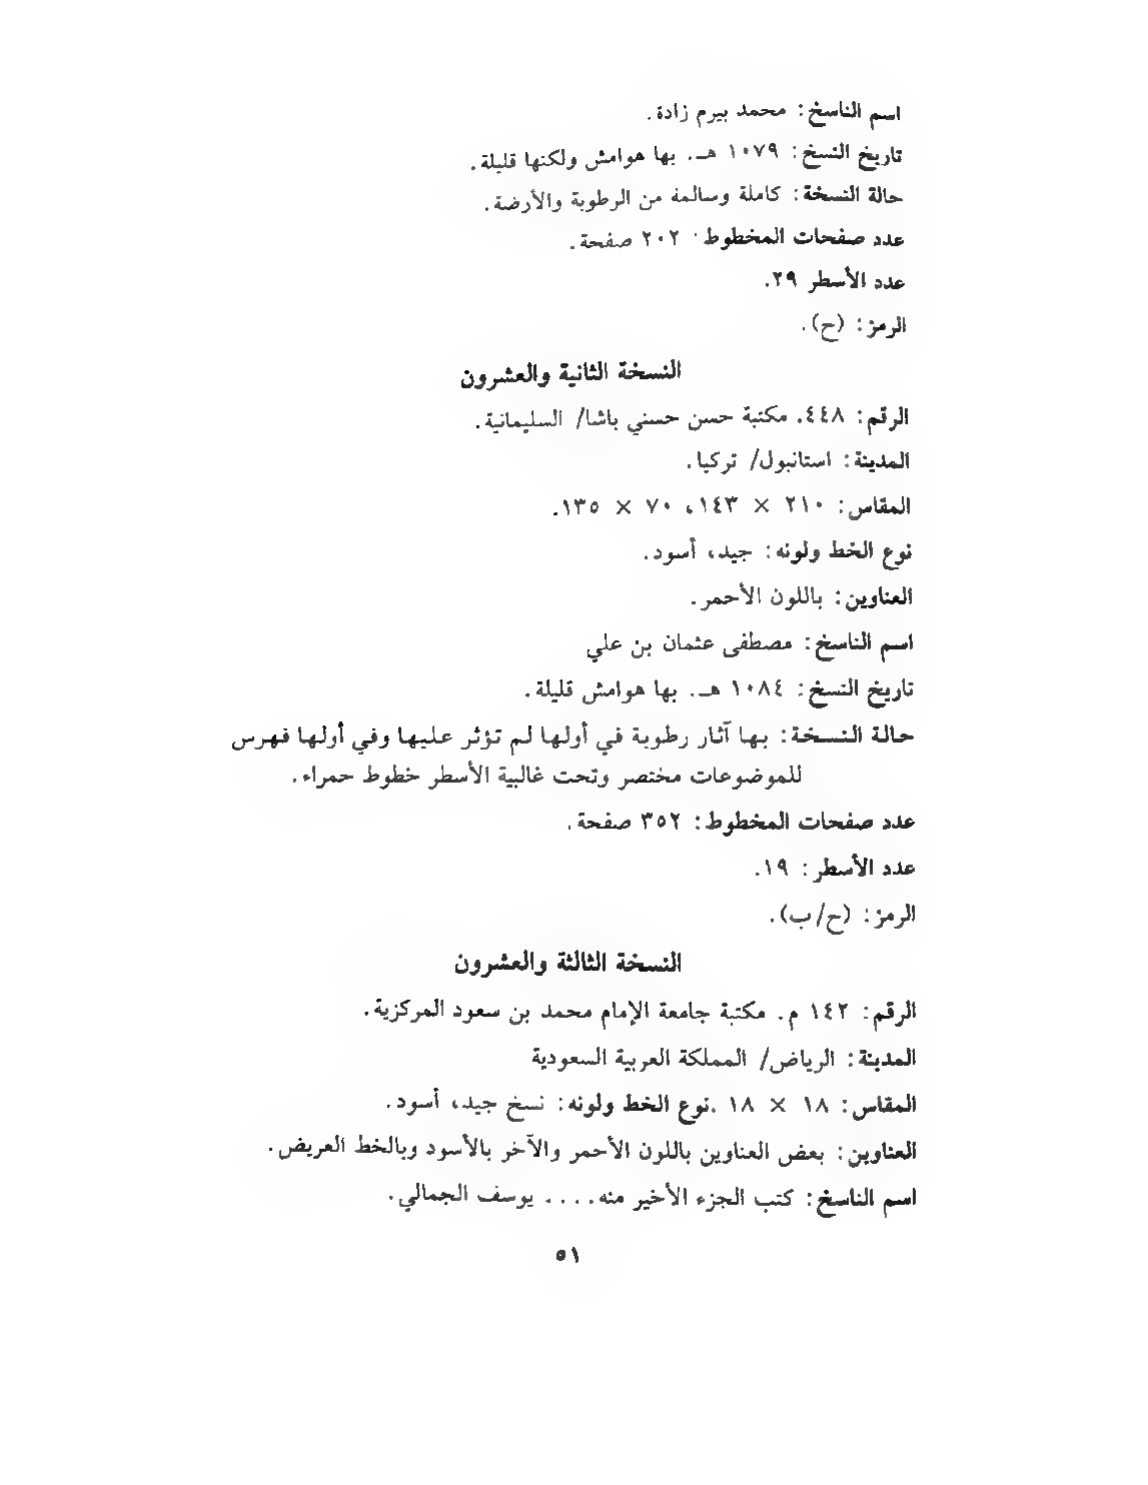 اسم الناسخ: محمد بيرم زادة.
تاريخ النسخ: ١٠٧٩ هـ. بها هوامش ولكنها قليلة.
حالة النسخة: كاملة وسالمة من الرطوبة والأرضة.
عدد صفحات المخطوط ٢٠٢ صفحة.
عدد الأسطر ٢٩.
الرمز: (ح).
النسخة الثانية والعشرون
الرقم: ٤٤٨. مكتبة حسن حسني باشا/ السليمانية.
المدينة: استانبول/ تركيا.
المقاس: ٢١٠ × ١٤٣، ٧٠ × ١٣٥.
نوع الخط ولونه: جيد، أسود.
العناوين: باللون الأحمر.
اسم الناسخ: مصطفى عثمان بن علي
تاريخ النسخ: ١٠٨٤ هـ. بها هوامش قليلة.
حالة النسخة: بها آثار رطوبة في أولها لم تؤثر عليها وفي أولها فهرس
للموضوعات مختصر وتحت غالبية الأسطر خطوط حمراء.
عدد صفحات المخطوط: ٣٥٢ صفحة.
عدد الأسطر: ١٩.
الرمز: (ح/ب).
النسخة الثالثة والعشرون
الرقم: ١٤٢ م. مكتبة جامعة الإمام محمد بن سعود المركزية.
المدينة: الرياض/ المملكة العربية السعودية
المقاس: ١٨ × ١٨ .نوع الخط ولونه: نسخ جيد، أسود.
العناوين: بعض العناوين باللون الأحمر والآخر بالأسود وبالخط العريض.
اسم الناسخ: كتب الجزء الأخير منه.... يوسف الجمالي.
٥١